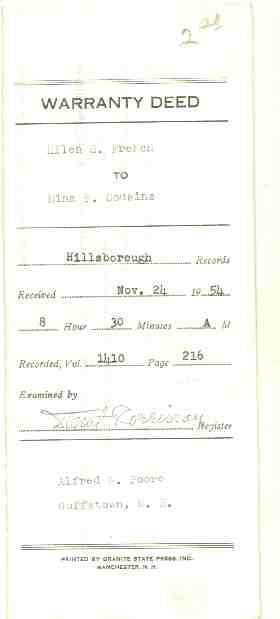 WARRANTY DEED
Ellen S. French
TO
Nina P. Cousins
Hillsborough Records
Received Nov. 24 1954
8 Hour 30 Minutes A M
Recorded, Vol. 1410 Page 216
Examined by
Register
Alfred Poore
Goffstown, N. H.
PRINTED BY GRANITE STATE PRESS, INC.
MANCHESTER, N. H.